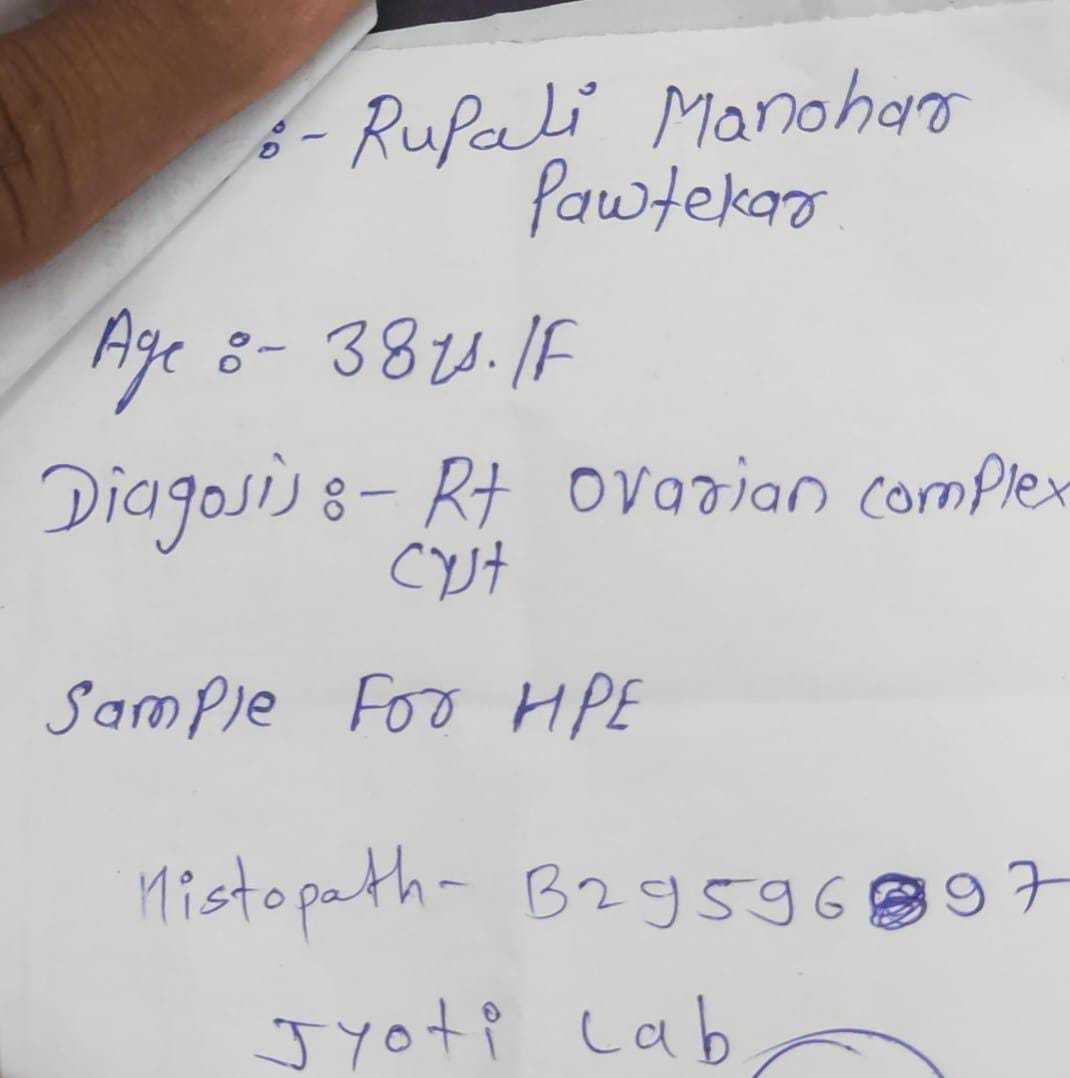 :- Rupali Manohar
Pawtekar
Age :- 38 ys. /F
Diagosis :- Rt ovarian complex
cyst
Sample For HPE
Histopath - B29596 97
Jyoti Lab